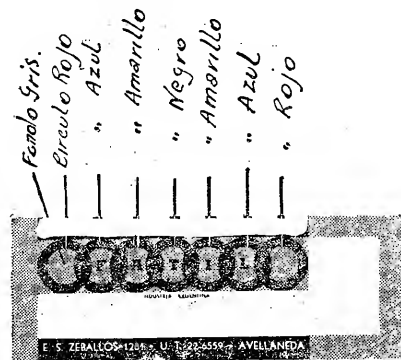 Fondo Gris.
Circulo Rojo
" Azul
" Amarillo
" Negro
" Amarillo
" Azul
" Rojo
INDUSTRIA ARGENTINA
E. S. ZEBALLOS 1281 - U. T. 22-6559 - AVELLANEDA